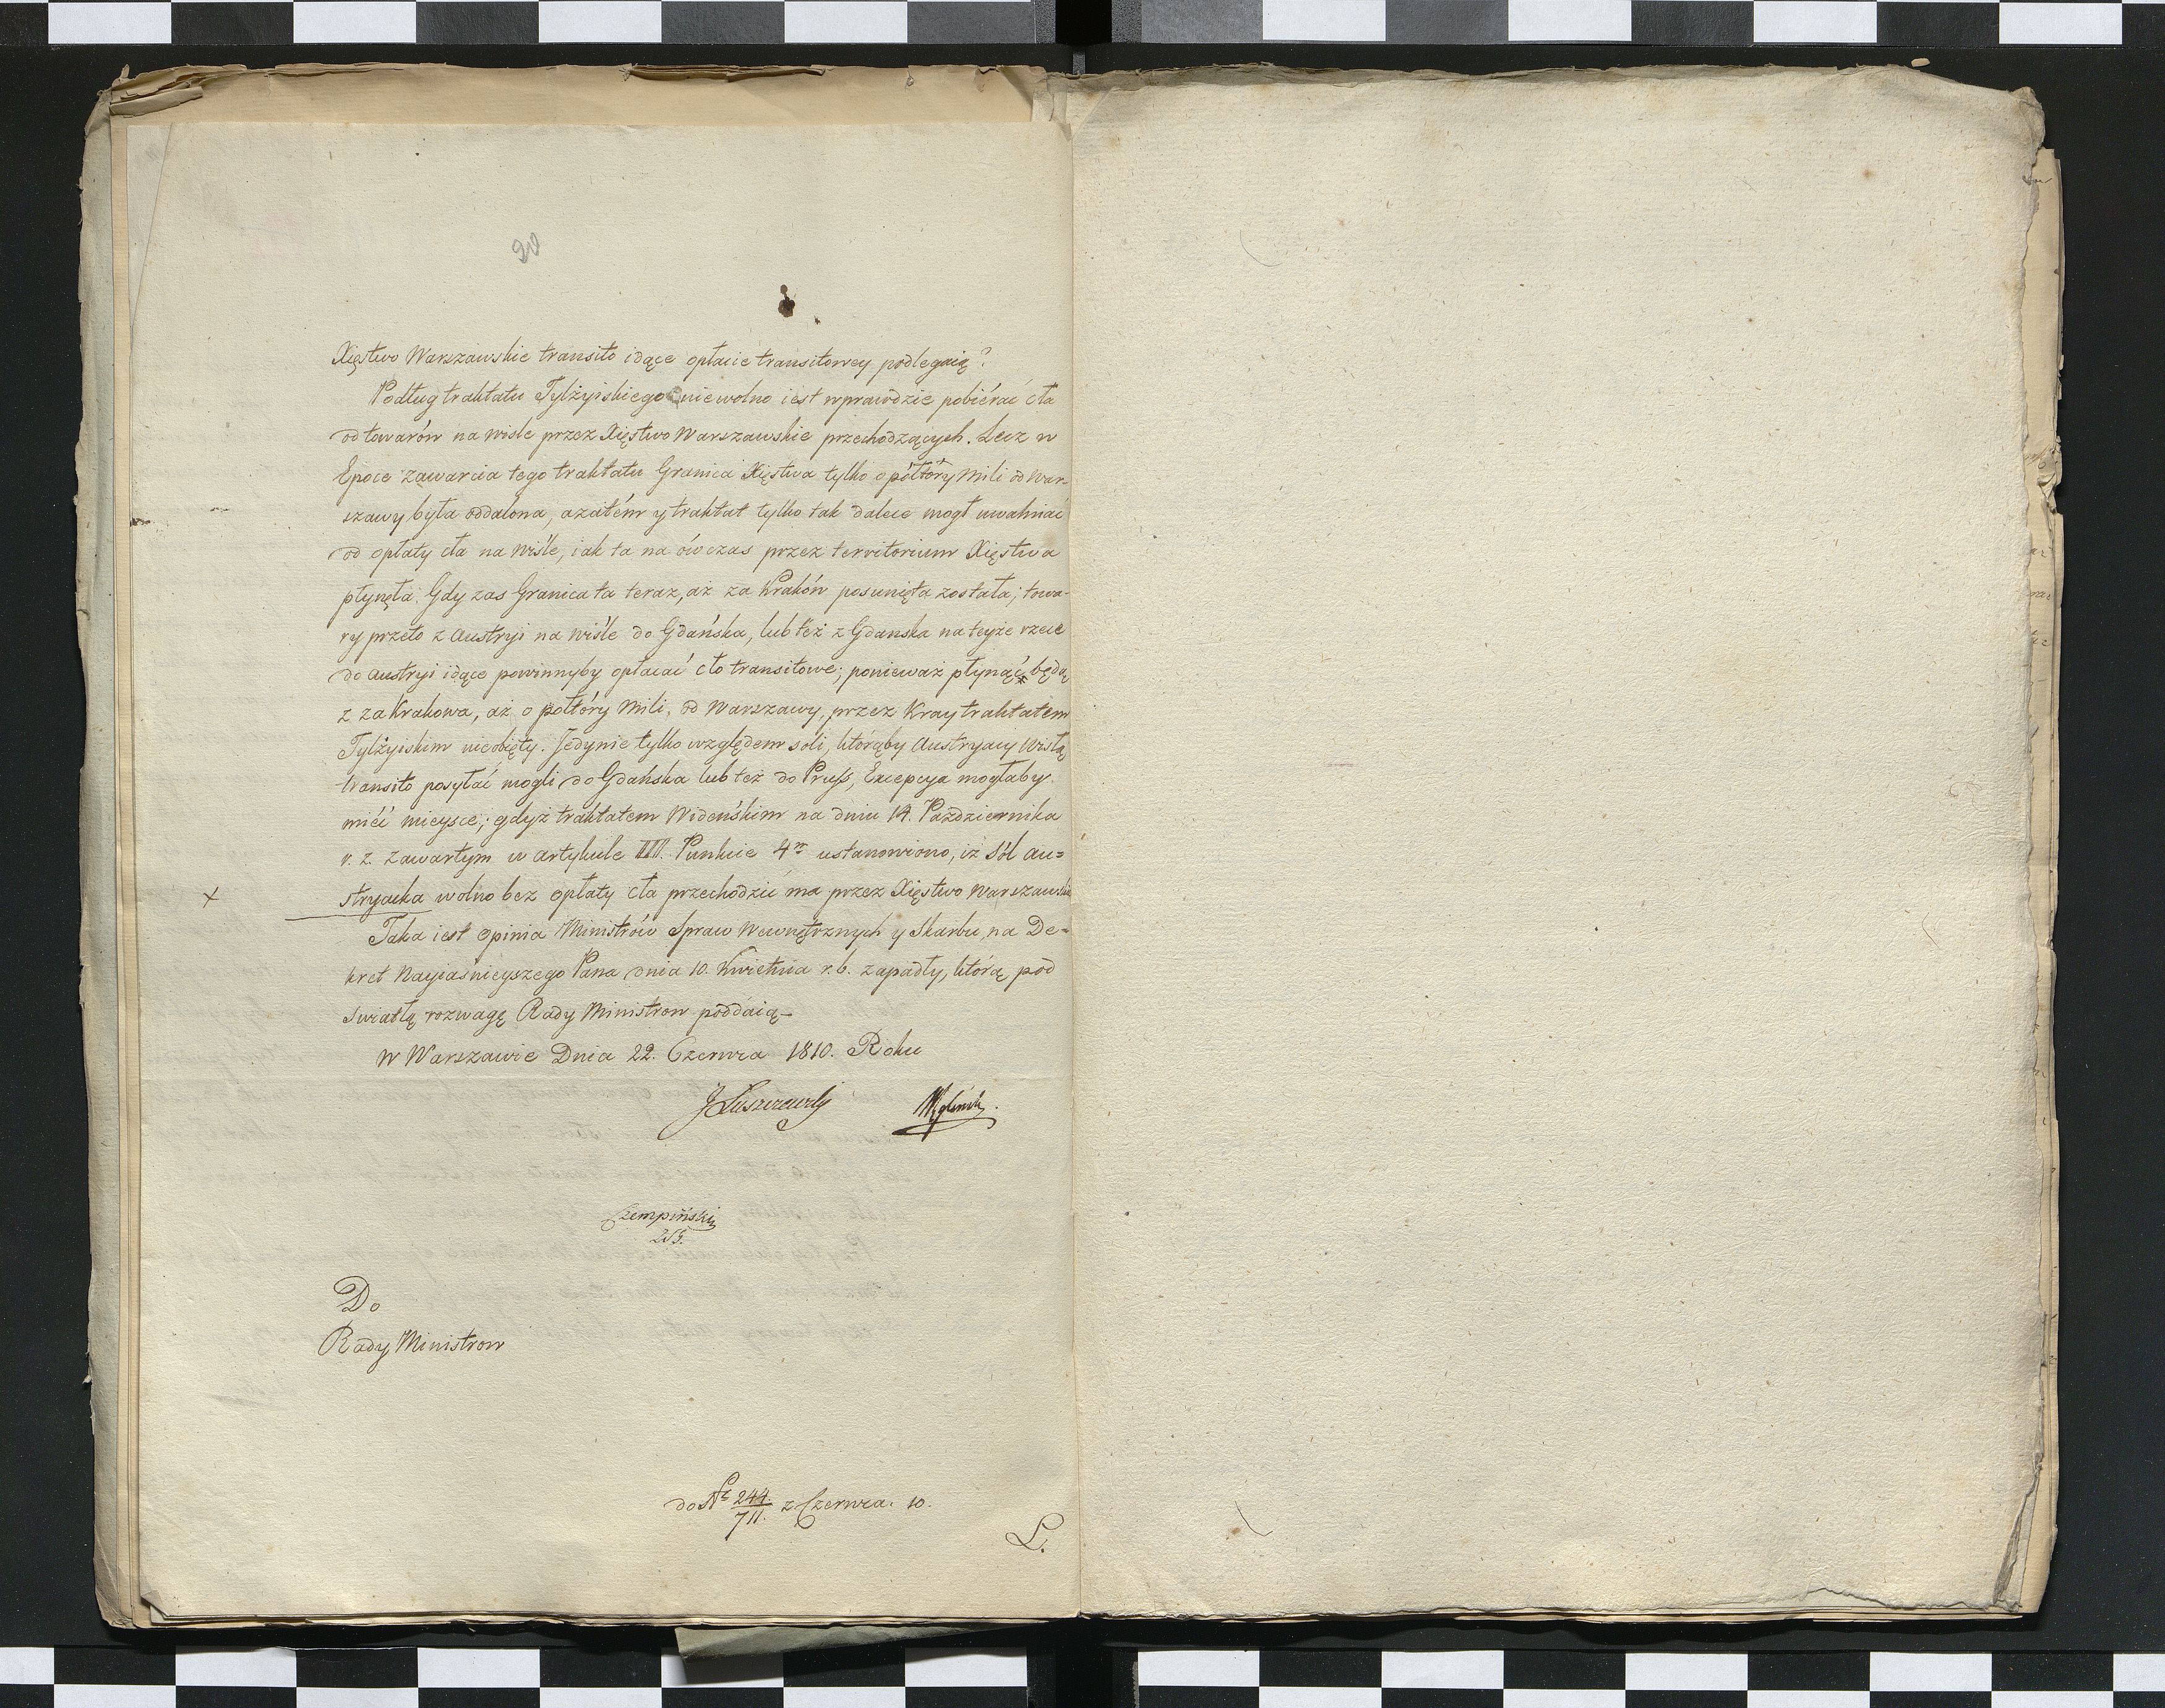 20
Xięstwo Warszawskie transito idące opłacie transitowey podlegaią?
Podług traktatu Tylżyiskiego niewolno iest wprawdzie pobiérać cła
od towarów na Wisle przez Xięstwo Warszawskie przechodzących. Lecz w
Epoce zawarcia tego traktatu Granica Xięstwa tylko o półtóry Mili od War-
szawy była oddalona, azatém y traktat tylko tak dalece mogł uwalniać
od opłaty cła na Wiśle, iak ta na ówczas przez territorium Xięstwa
płynęła. Gdy zas Granica ta teraz, aż za Kraków posunięta została; towa-
ry przeto z Austryi na Wiśle do Gdańska, lub też z Gdanska na teyże rzece
do Austryi idące powinnyby opłacać cło transitowe; ponieważ płynąć będą
z za Krakowa, aż o półtóry Mili, od Warszawy, przez Kray traktatem
Tylżyiskim nieobięty. Jedynie tylko względem soli, którąby Austryacy Wisłą
transito posyłać mogli do Gdańska lub też do Pruss, Excepcya mogłaby
mieć mieysce; gdyż traktatem Widenśkim na dniu 14. Pazdziernika
r. z. zawartym w artykule III. Punkcie 4m ustanowiono, iż sól au=
stryacka wolno bez opłaty cła przechodzić ma przez Xięstwo Warszawskie
Taka iest Opinia Ministrów Spraw Wewnętrznych y Skarbu, na De=
kret Nayiaśnieyszego Pana dnia 10. Kwietnia r. b. zapadły, którą pod
swiatłą rozwagę Rady Ministrow poddaią
W Warszawie Dnia 22. Czerwca 1810. Roku
J Łuszczewski Węgleński
Czempiński
Do
Rady Ministrow
do No 244/711. z Czerwca. 10.
L.